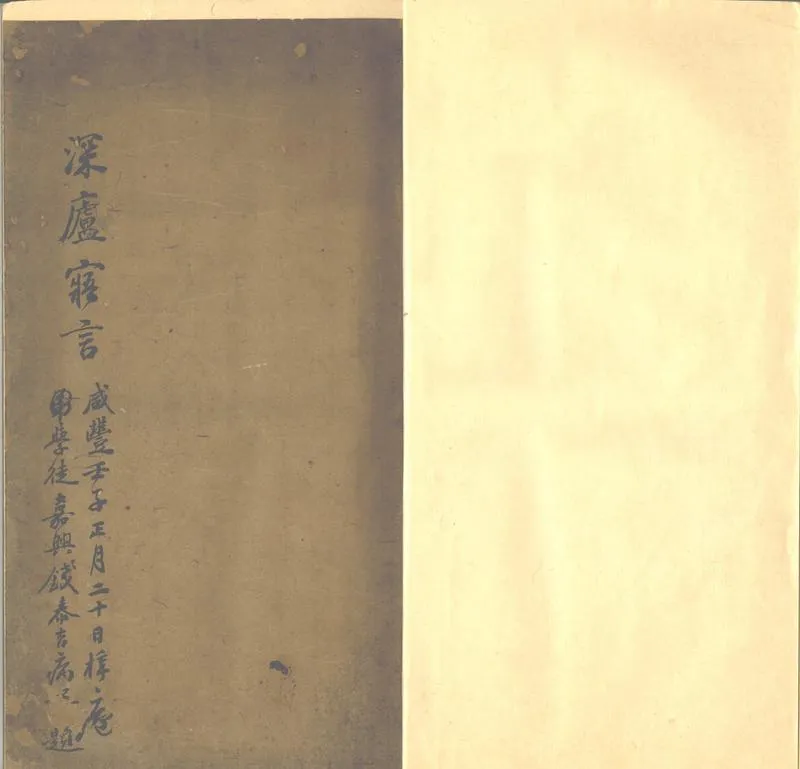 深廬寤言
咸豐壬子正月二十日樗庵
學徒嘉興錢泰吉病題